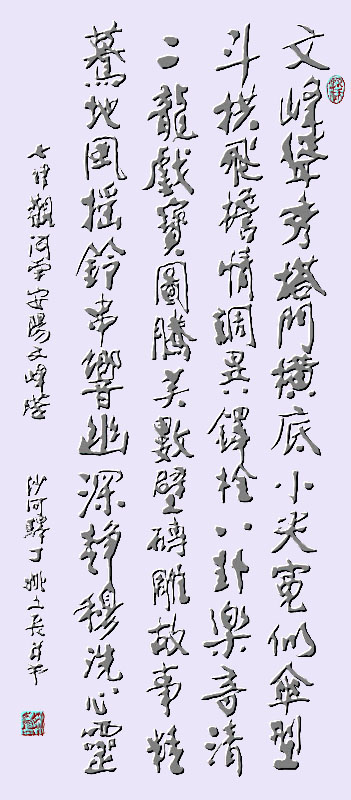 文峰聳秀塔門橫底小尖寬似傘型
斗拱飛檐情調異鐸栓八卦樂奇清
二龍戲寶圖騰美數壁磚雕故事精
驀地風搖鈴串響幽深靜穆洗心靈
七律觀河南安陽文峰塔 沙河驛